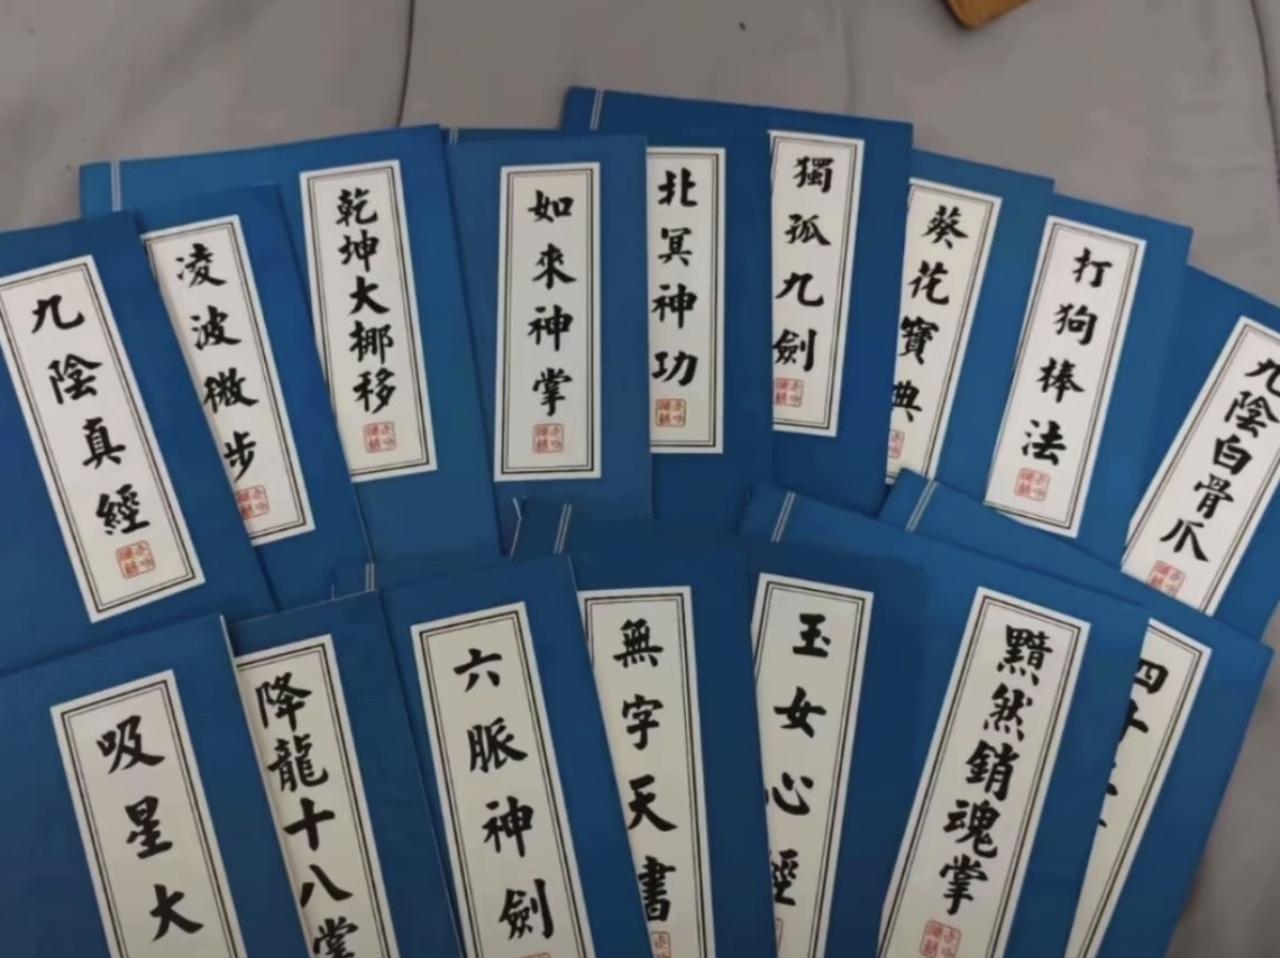 九陰真經
凌波微步
乾坤大挪移
如來神掌
北冥神功
獨孤九劍
葵花寶典
打狗棒法
九陰白骨爪
吸星大
降龍十八掌
六脈神劍
無字天書
玉女心經
黯然銷魂掌
四十